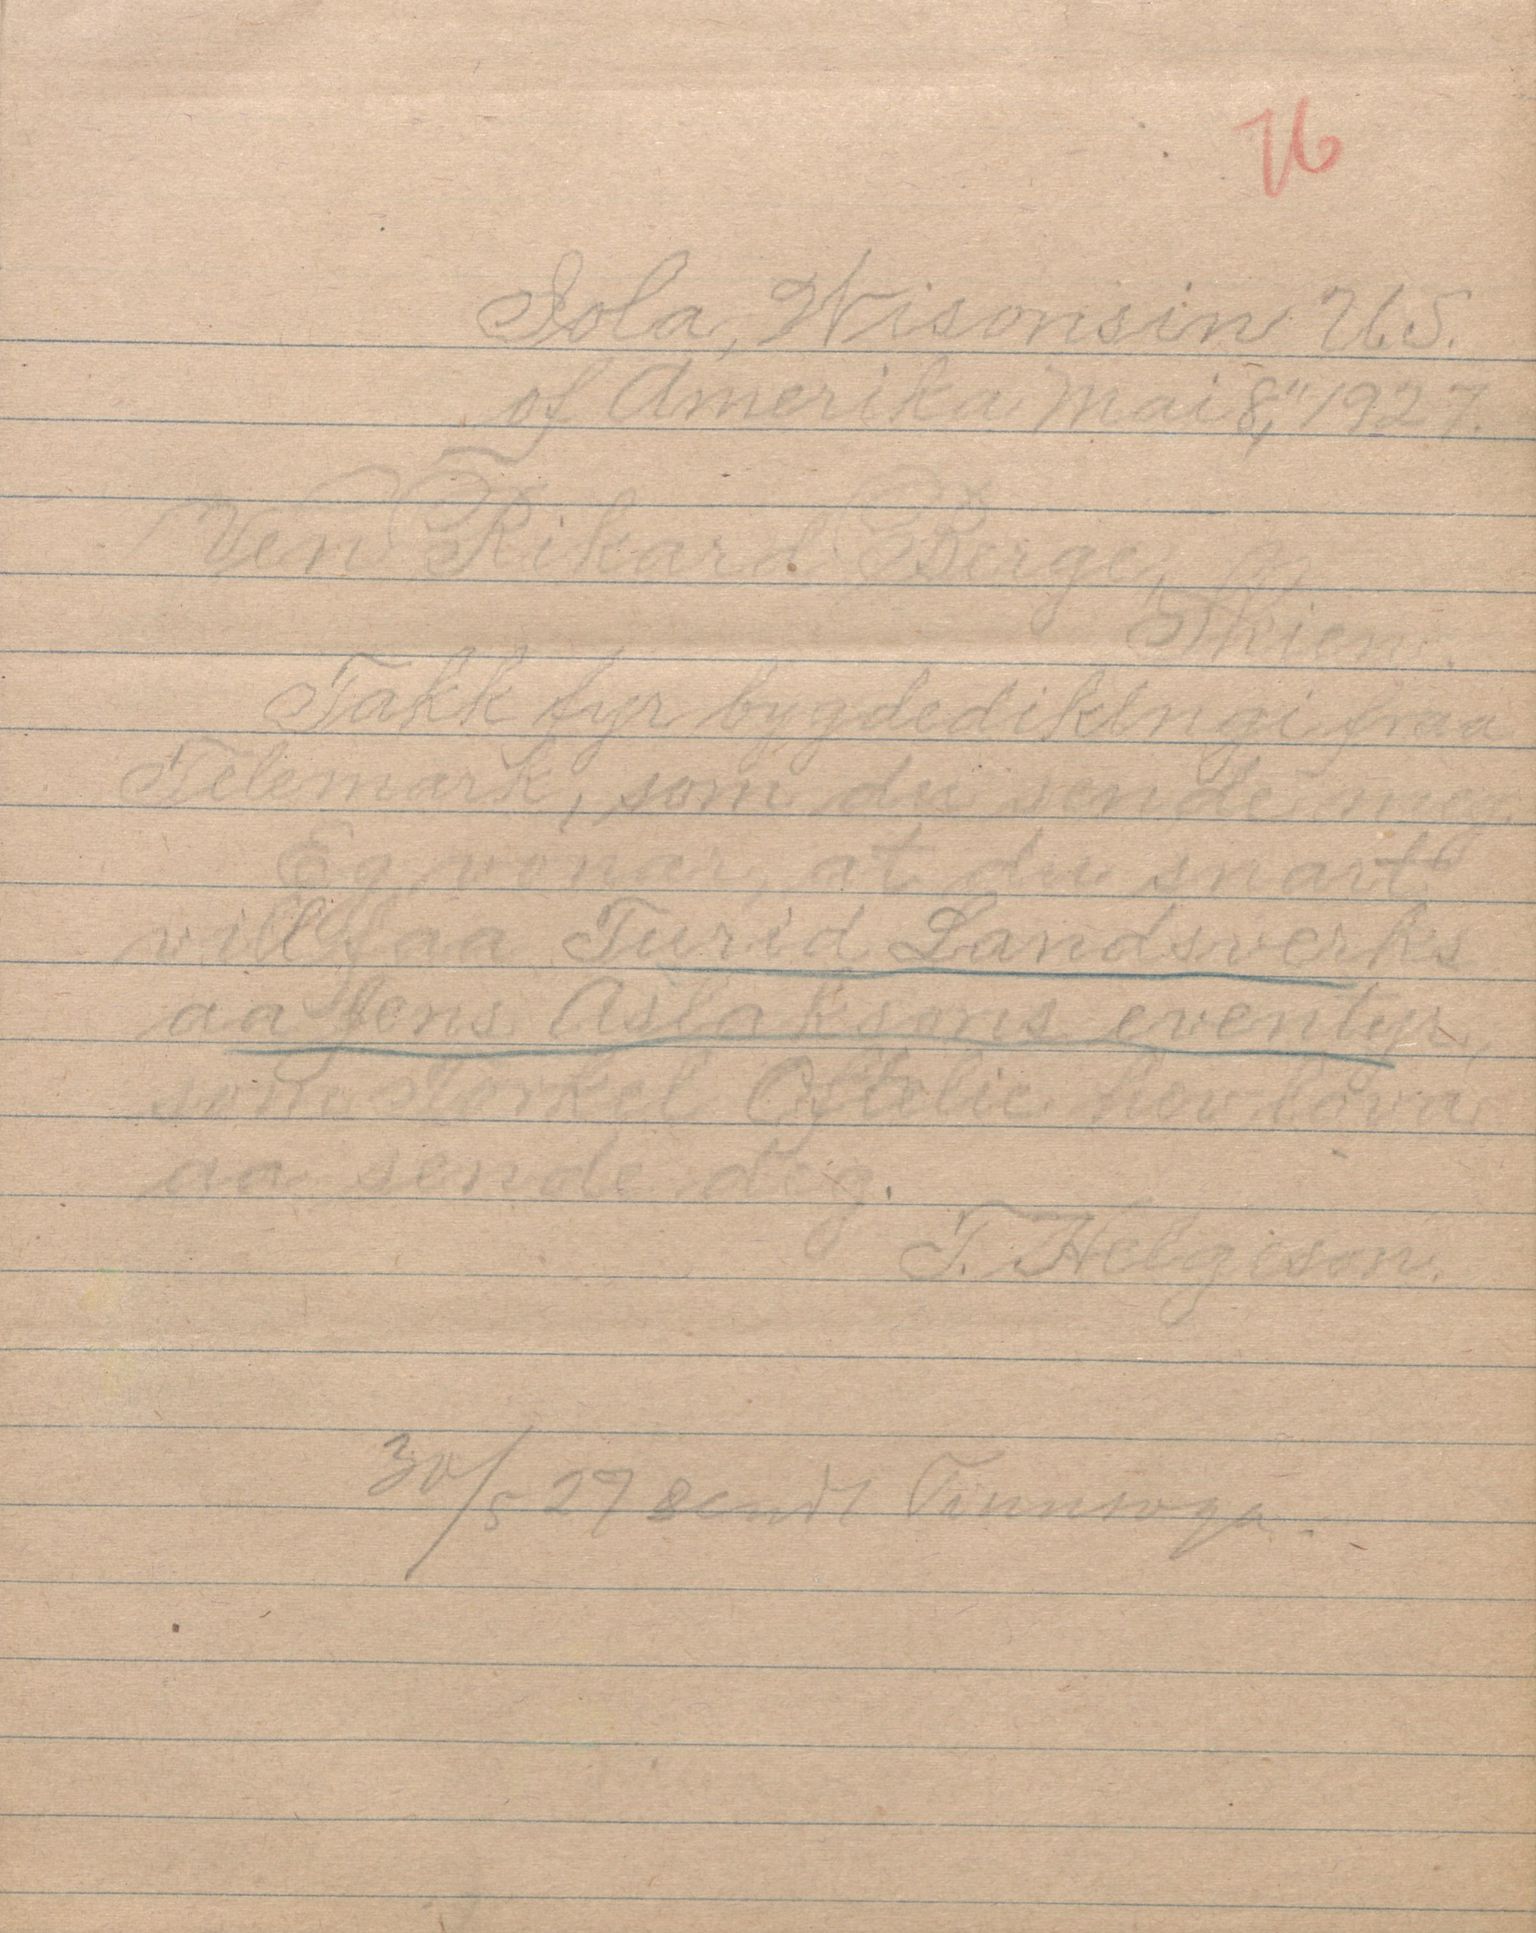 76
Iola, Wisonsin U.S.
of Amerika Mai 8," 1927.
Ven Rikard Berge,
Skien.
Takk fyr bygdediktngi fraa
Telemark, som du sende meg.
Eg vonar, at du snart
vill faa Turid Landsverks
aa Jens Aslaksons eventyr,
som Torkel Oftelie hev lova
aa sende deg.
T. Helgeson.
30/5 27 sendt Tinnsoga.